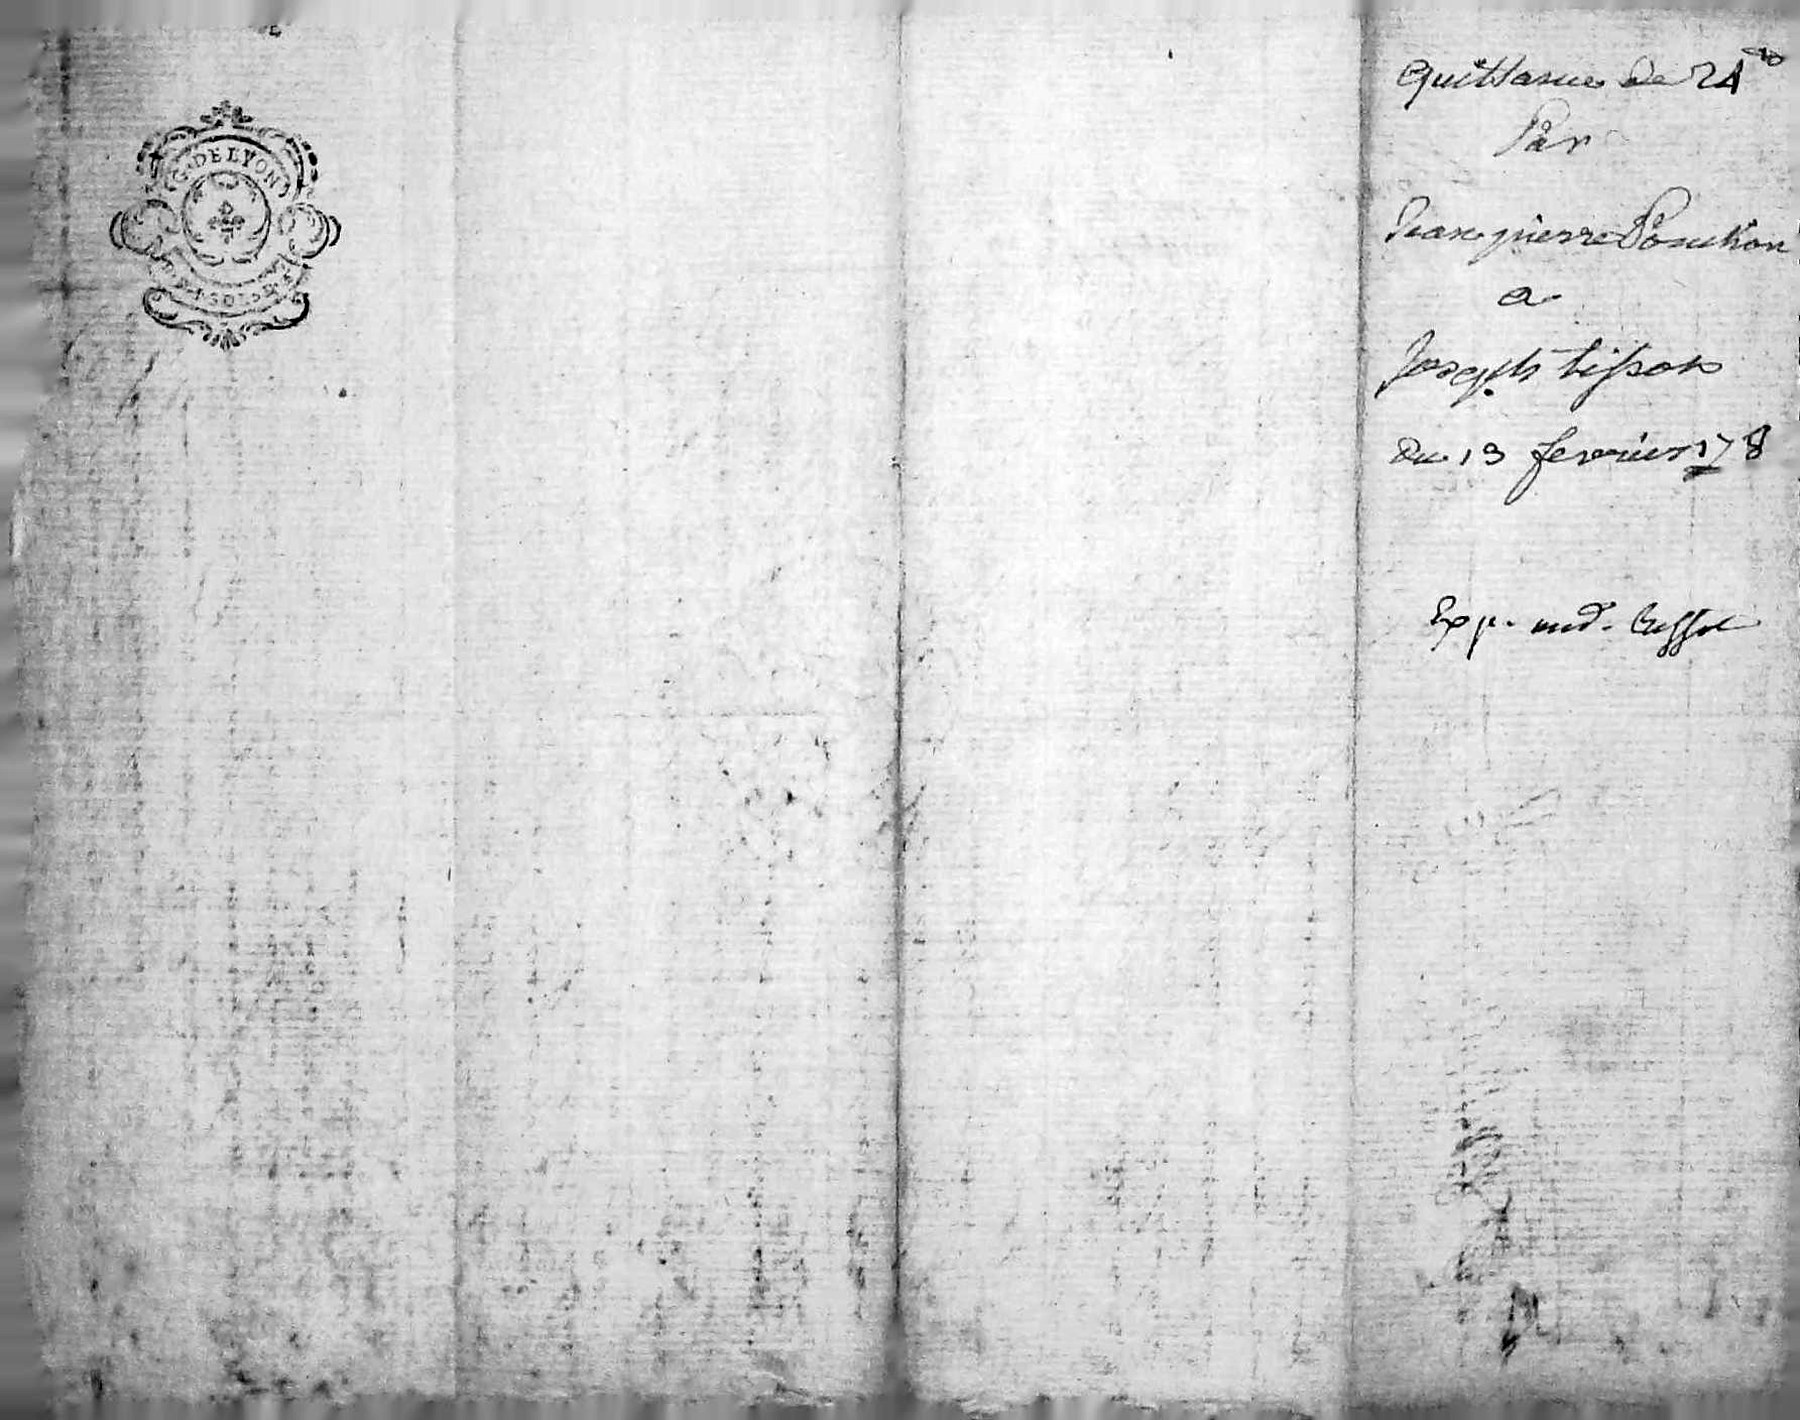 G. DE LYON
quittance de 24
Par
Jean pierre Ponchon
a
Joseph tissot
du 13 fevrier 178
Exp. md. tissot